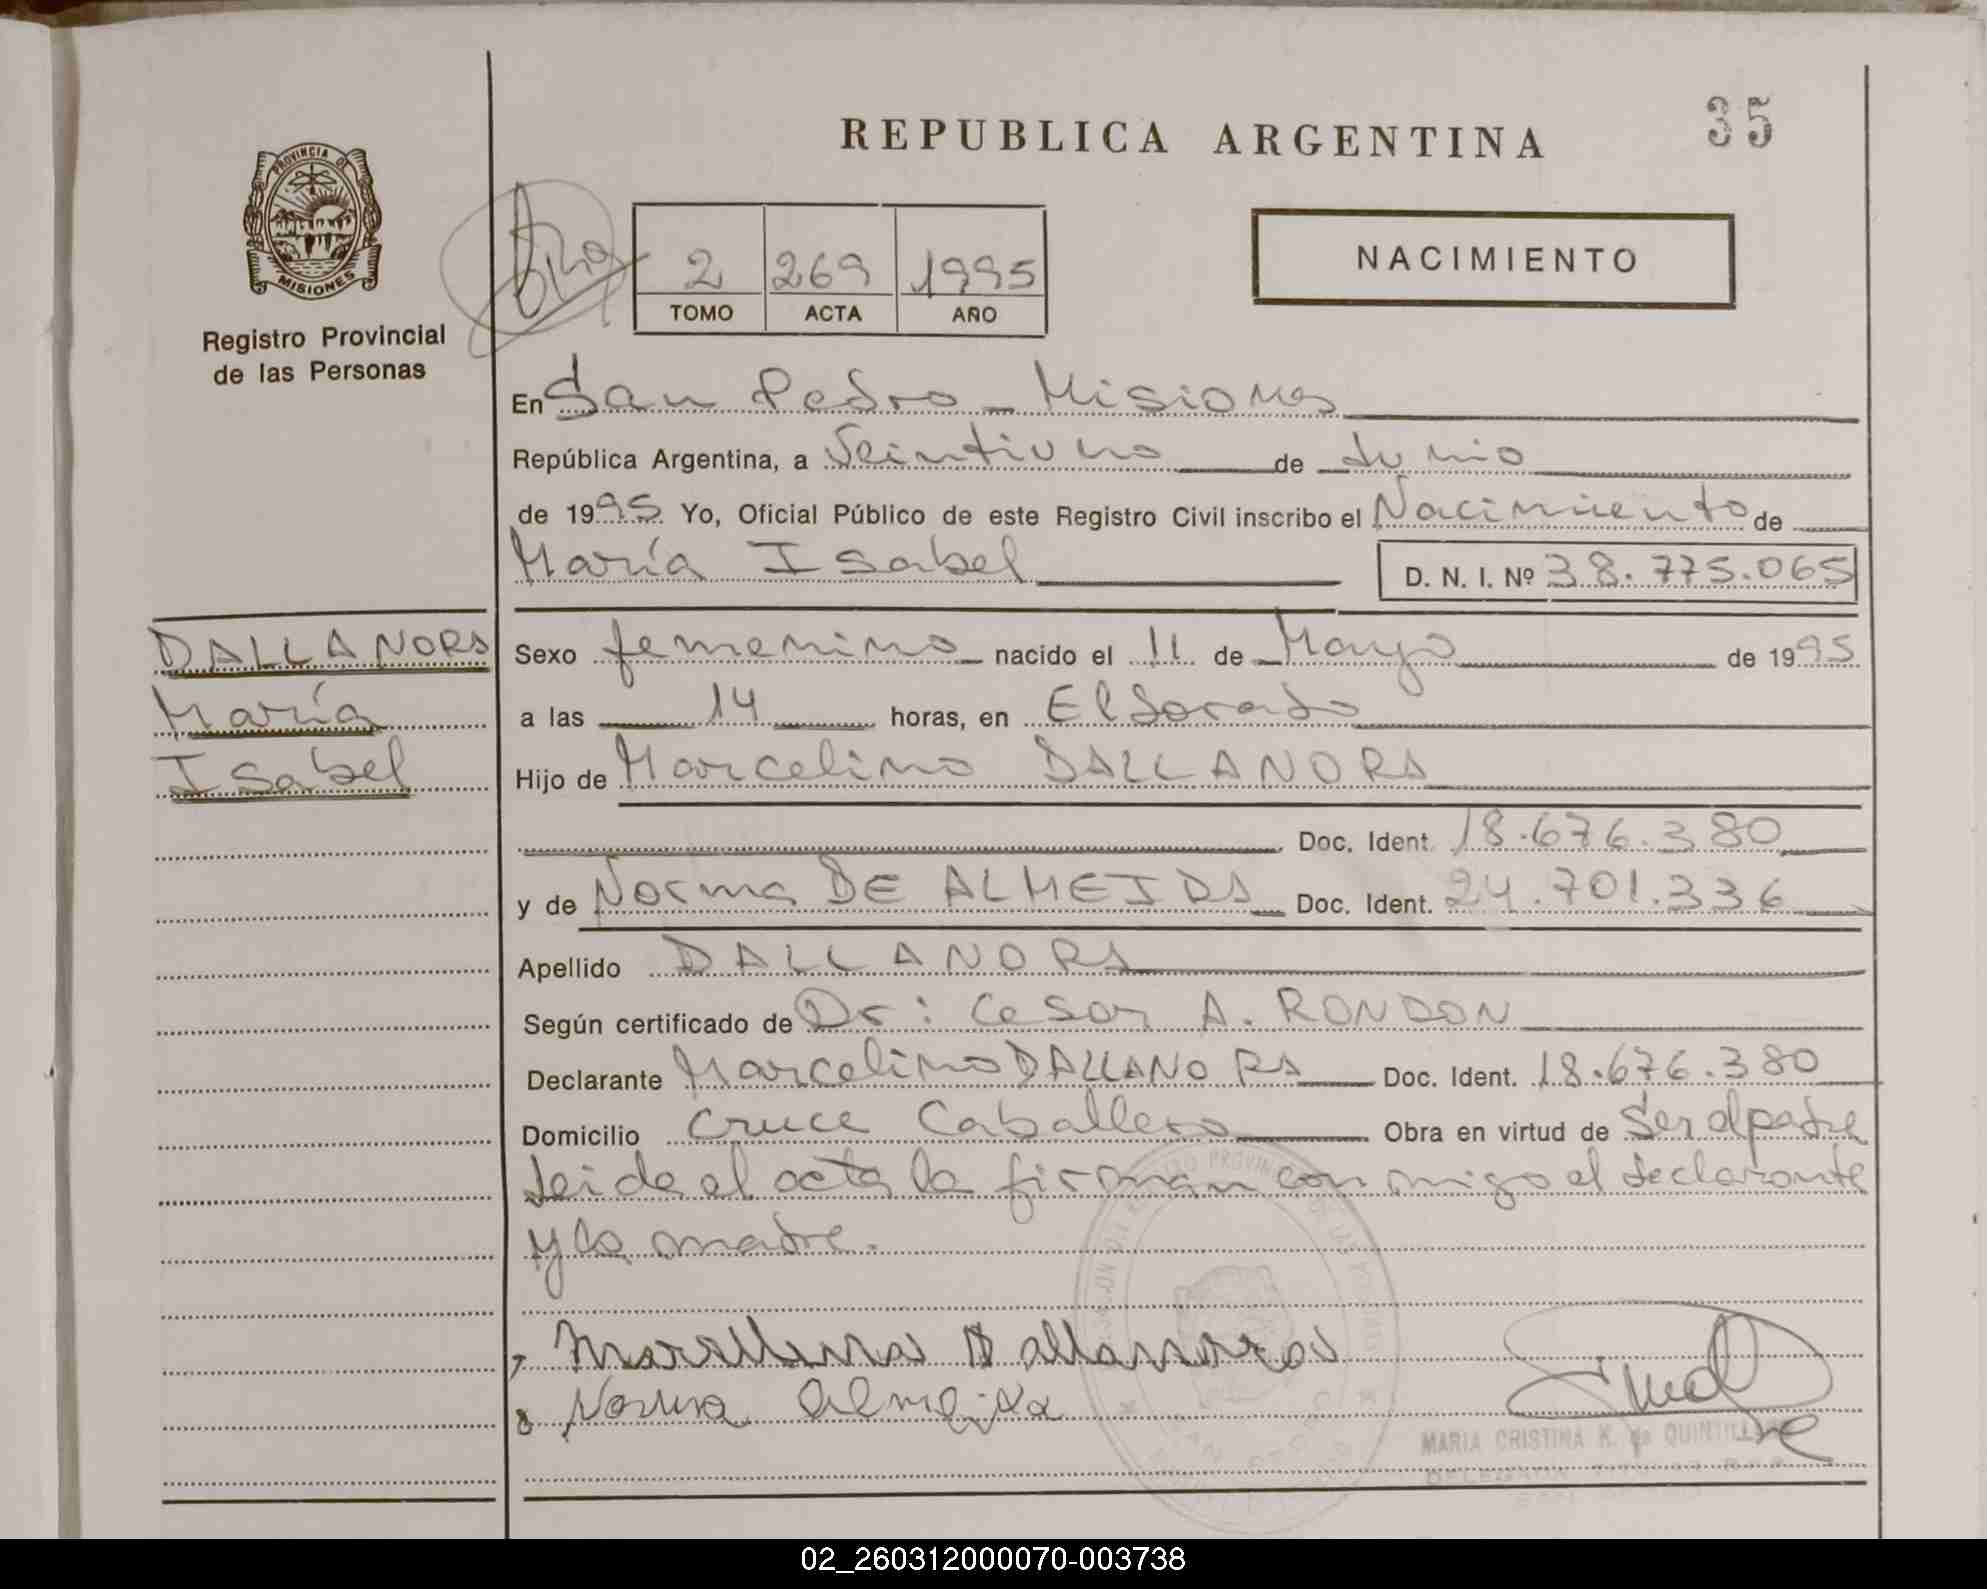 REPUBLICA ARGENTINA
35
PROVINCIA DE
MISIONES
Registro Provincial
de las Personas
2 269 1995
TOMO ACTA AÑO
NACIMIENTO
En San Pedro - Misiones
República Argentina, a Veintiuno de Junio
de 1995 Yo, Oficial Público de este Registro Civil inscribo el Nacimiento de
María Isabel D. N. I. Nº 38.775.065
DALLANORA
María
Isabel
Sexo femenino nacido el 11 de Mayo de 1995
a las 14 horas, en Eldorado
Hijo de Marcelino DALLANORA
Doc. Ident. 18.676.380
y de Norma DE ALMEIDA Doc. Ident. 24.701.336
Apellido DALLANORA
Según certificado de Dr: Cesar A. RONDON
Declarante Marcelino DALLANORA Doc. Ident. 18.676.380
Domicilio Cruce Caballero Obra en virtud de Ser el padre
Leida el acta la firman conmigo el declarante
y la madre.
Norma Almeida
MARIA CRISTINA K. de
02_260312000070-003738